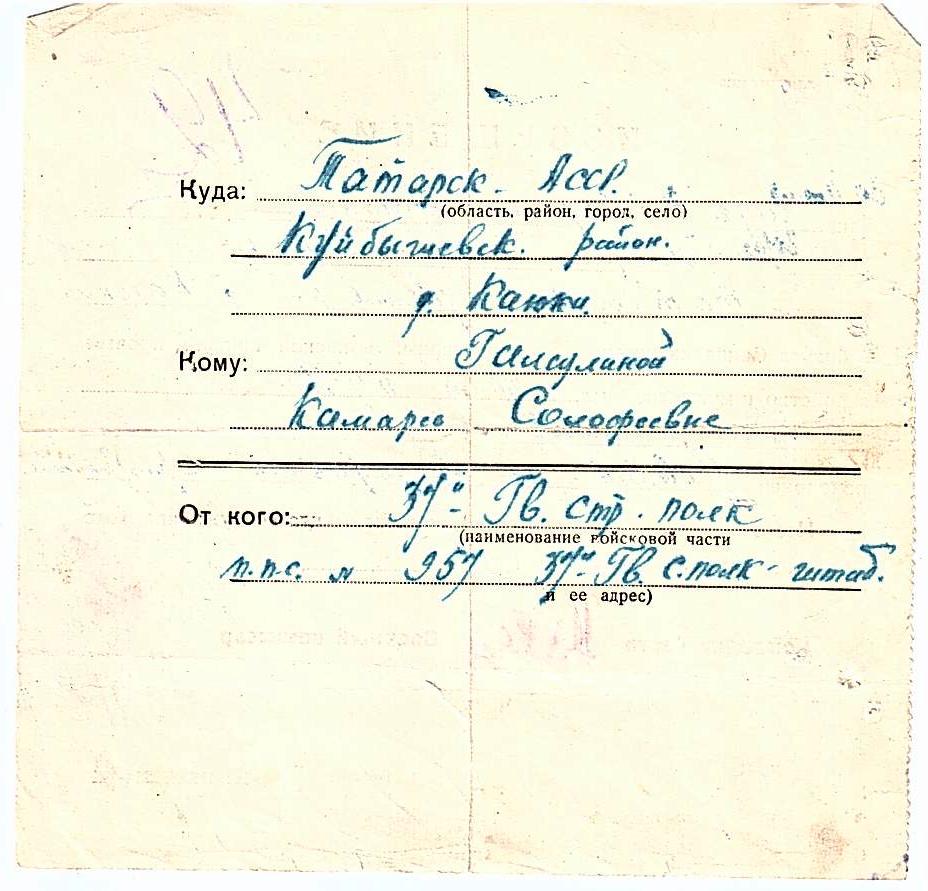 Куда: Татарск- Асср.
(область, район, город, село)
Куйбышевск. район.
д. Каюки.
Кому: Гайсулиной
Камаре
От кого: 37й- Гв. стр. полк
(наименование войсковой части
п.п.с. N 957 37й- Гв. с.полк- штаб.
и ее адрес)